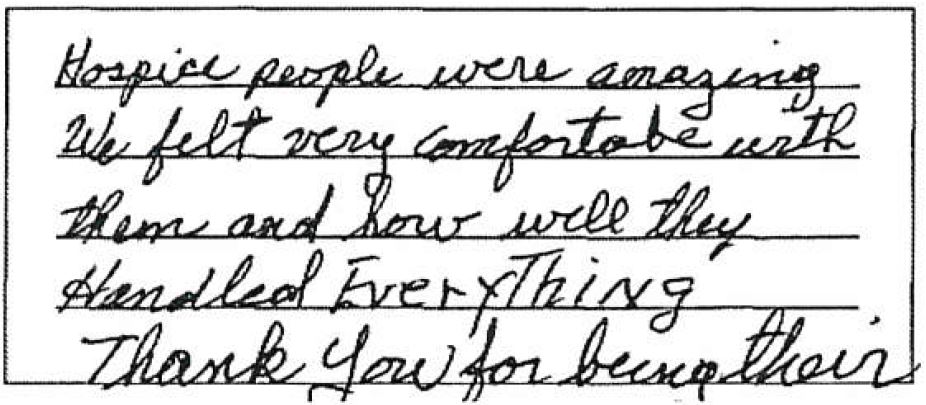 Hospice people were amazing
We felt very comfortabe with
them and how well they
Handled EveryThing
Thank You for being their